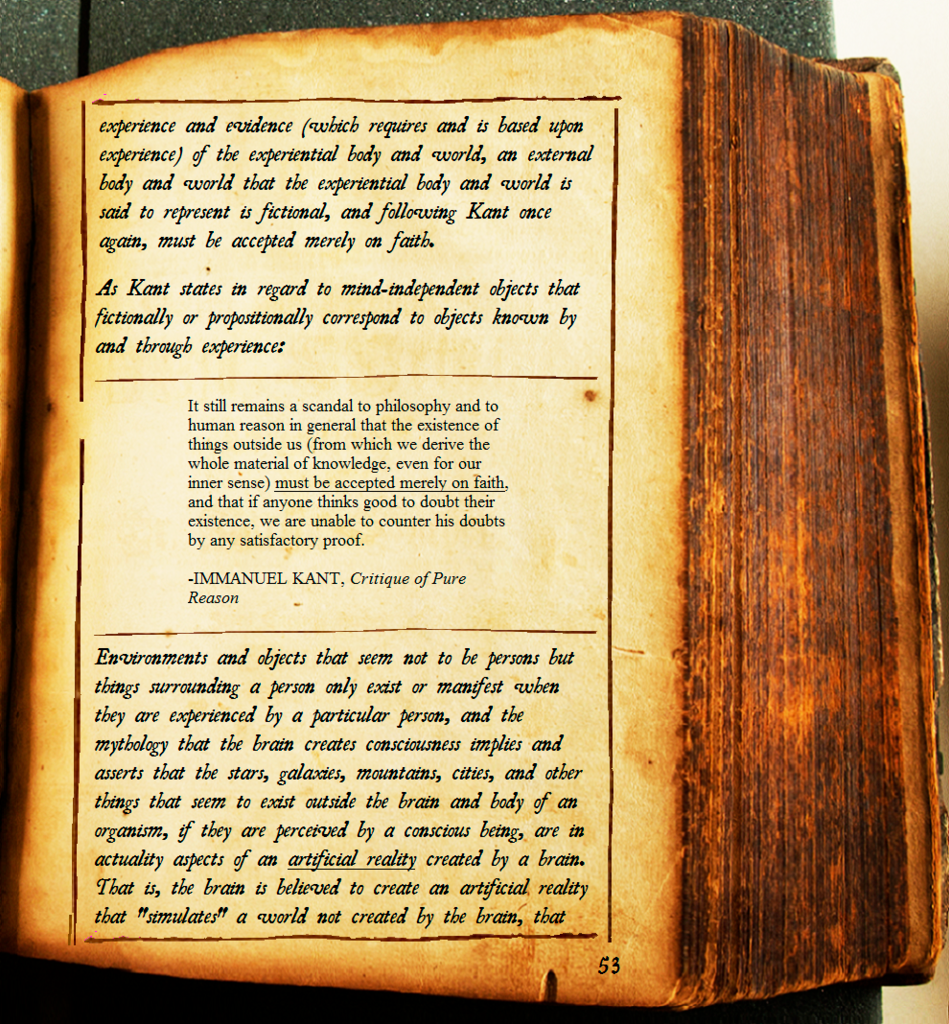 experience and evidence (which requires and is based upon
experience) of the experiential body and world, an external
body and world that the experiential body and world is
said to represent is fictional, and following Kant once
again, must be accepted merely on faith.
As Kant states in regard to mind-independent objects that
fictionally or propositionally correspond to objects known by
and through experience:
It still remains a scandal to philosophy and to
human reason in general that the existence of
things outside us (from which we derive the
whole material of knowledge, even for our
inner sense) must be accepted merely on faith,
and that if anyone thinks good to doubt their
existence, we are unable to counter his doubts
by any satisfactory proof.
-IMMANUEL KANT, Critique of Pure
Reason
Environments and objects that seem not to be persons but
things surrounding a person only exist or manifest when
they are experienced by a particular person, and the
mythology that the brain creates consciousness implies and
asserts that the stars, galaxies, mountains, cities, and other
things that seem to exist outside the brain and body of an
organism, if they are perceived by a conscious being, are in
actuality aspects of an artificial reality created by a brain.
That is, the brain is believed to create an artificial reality
that "simulates" a world not created by the brain, that
53